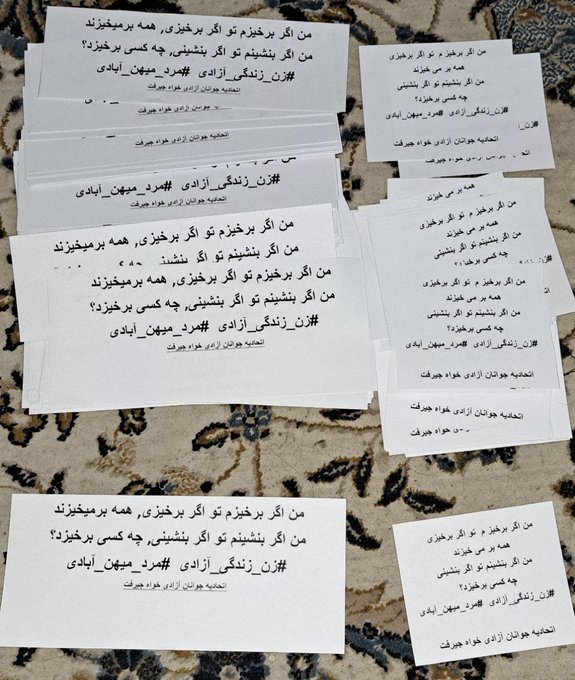 من اگر برخیزم تو اگر برخیزی, همه برمیخیزند
من اگر بنشینم تو اگر بنشینی, چه کسی برخیزد؟
#زن_زندگی_آزادی #مرد_میهن_آبادی
اتحادیه جوانان آزادی خواه جیرفت
اتحادیه جوانان آزادی خواه جیرفت
#زن_زندگی_آزادی #مرد_میهن_آبادی
اتحادیه جوانان آزادی خواه جیرفت
من اگر برخیزم تو اگر برخیزی, همه برمیخیزند
من اگر بنشینم تو اگر بنشینی, چه
من اگر برخیزم تو اگر برخیزی, همه برمیخیزند
من اگر بنشینم تو اگر بنشینی, چه کسی برخیزد؟
#زن_زندگی_آزادی #مرد_میهن_آبادی
اتحادیه جوانان آزادی خواه جیرفت
من اگر برخیز م تو اگر برخیزی
همه بر می خیزند
من اگر بنشینم تو اگر بنشینی
چه کسی برخیزد؟
#زن_زندگی_آزادی #مرد_میهن_آبادی
اتحادیه جوانان آزادی خواه جیرفت
همه بر می خیزند
من اگر برخیز م تو اگر برخیزی
همه بر می خیزند
من اگر بنشینم تو اگر بنشینی
چه کسی برخیزد؟
من اگر برخیز م تو اگر برخیزی
همه بر می خیزند
من اگر بنشینم تو اگر بنشینی
چه کسی برخیزد؟
#زن_زندگی_آزادی #مرد_میهن_آبادی
اتحادیه جوانان آزادی خواه جیرفت
اتحادیه جوانان آزادی خواه جیرفت
اتحادیه جوانان آزادی خواه جیرفت
من اگر برخیزم تو اگر برخیزی, همه برمیخیزند
من اگر بنشینم تو اگر بنشینی, چه کسی برخیزد؟
#زن_زندگی_آزادی #مرد_میهن_آبادی
اتحادیه جوانان آزادی خواه جیرفت
من اگر برخیز م تو اگر برخیزی
همه بر می خیزند
من اگر بنشینم تو اگر بنشینی
چه کسی برخیزد؟
#زن_زندگی_آزادی #مرد_میهن_آبادی
اتحادیه جوانان آزادی خواه جیرفت